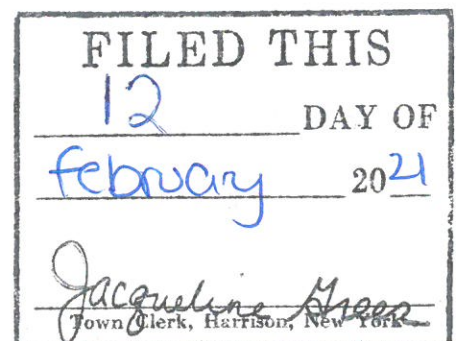 FILED THIS
12 DAY OF
february 2021
Jacqueline Greer
Town Clerk, Harrison, New York